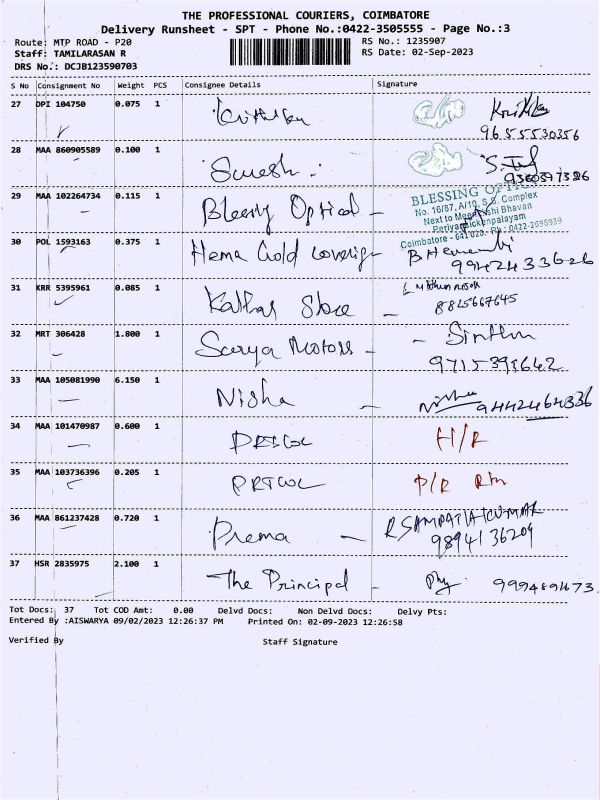 THE PROFESSIONAL COURIERS, COIMBATORE
Delivery Runsheet - SPT - Phone No.:0422-3505555 - Page No.:3
Route: MTP ROAD - P20 RS No.: 1235907
Staff: TAMILARASAN R RS Date: 02-Sep-2023
DRS No.: DCJB123590703
S No Consignment No Weight PCS Consignee Details Signature
27 DPI 104750 0.075 1
9655530356
28 MAA 860905589 0.100 1 Suresh
29 MAA 102264734 0.115 1 Blessing Optical -
BLESSING
No. 16/87, A/10, S.S. Complex
Next to Meenakshi Bhavan
Periyanaickenpalayam
Coimbatore - 641 020. Ph: 0422-2695939
30 POL 1593163 0.375 1 Hema Gold covering -
9942433626
31 KRR 5395961 0.085 1 Store -
8825667645
32 MRT 306428 1.800 1 Surya Motors -
9715398642
33 MAA 105081990 6.150 1 Nisha - Nisha 9442464336
34 MAA 101470987 0.600 1 PRICOL H/R
35 MAA 103736396 0.205 1 PRICOL P/R
36 MAA 861237428 0.720 1 Prema - R SAMPATHKUMAR
9894136209
37 HSR 2835975 2.100 1 The Principal - 999489473
Tot Docs: 37 Tot COD Amt: 0.00 Delvd Docs: Non Delvd Docs: Delvy Pts:
Entered By :AISWARYA 09/02/2023 12:26:37 PM Printed On: 02-09-2023 12:26:58
Verified By Staff Signature